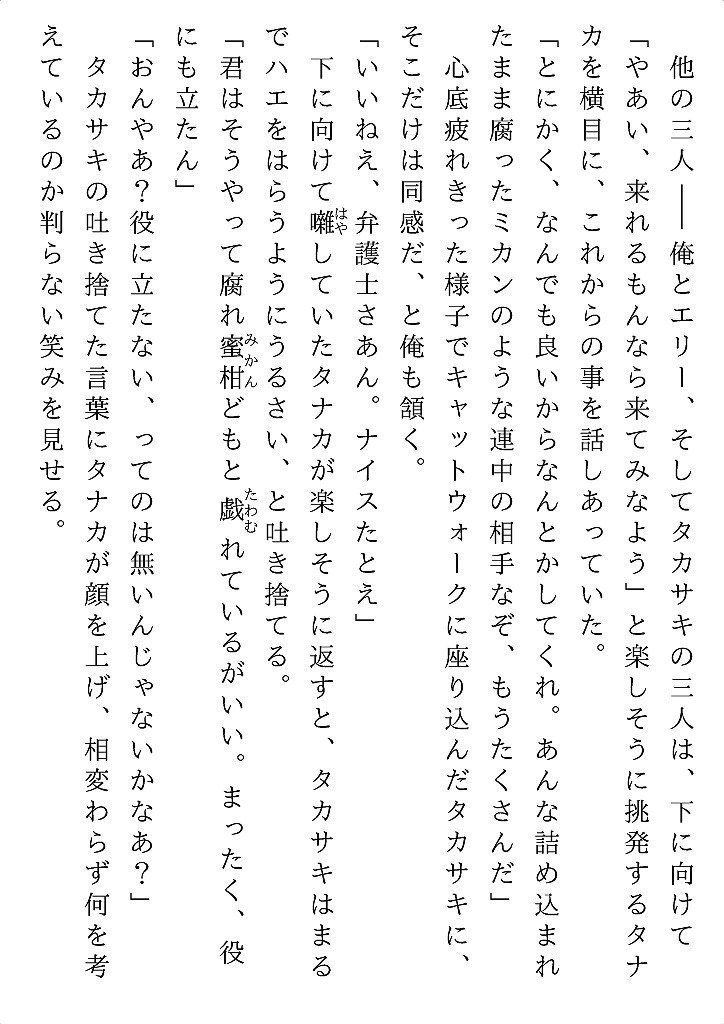 他の三人――俺とエリー、そしてタカサキの三人は、下に向けて
「やあい、来れるもんなら来てみなよう」と楽しそうに挑発するタナ
カを横目に、これからの事を話しあっていた。
「とにかく、なんでも良いからなんとかしてくれ。あんな詰め込まれ
たまま腐ったミカンのような連中の相手なぞ、もうたくさんだ」
　心底疲れきった様子でキャットウォークに座り込んだタカサキに、
そこだけは同感だ、と俺も頷く。
「いいねえ、弁護士さあん。ナイスたとえ」
　下に向けて囃はやしていたタナカが楽しそうに返すと、タカサキはまる
でハエをはらうようにうるさい、と吐き捨てる。
「君はそうやって腐れ蜜柑みかんどもと戯たわむれているがいい。まったく、役
にも立たん」
「おんやあ？役に立たない、ってのは無いんじゃないかなあ？」
　タカサキの吐き捨てた言葉にタナカが顔を上げ、相変わらず何を考
えているのか判らない笑みを見せる。